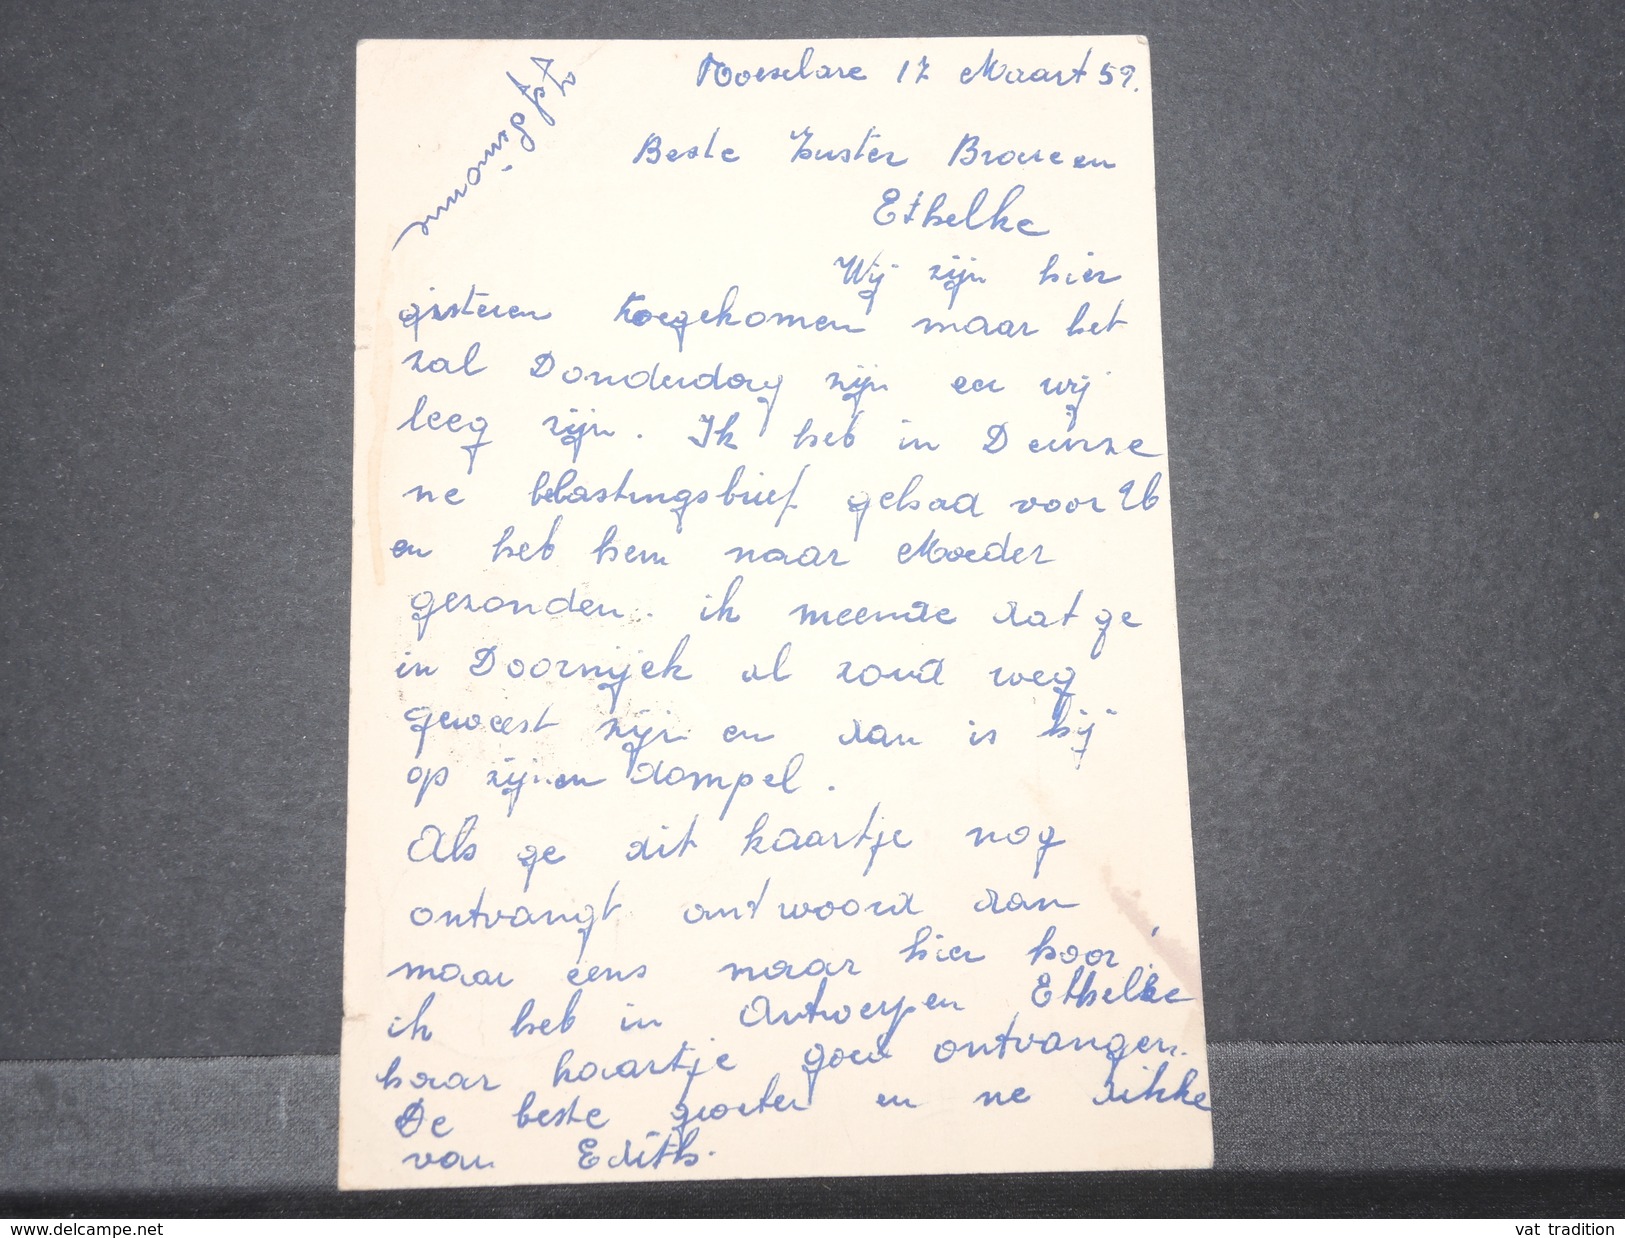 Roeselare 17 Maart 59.
Beste Zuster Broer en
Ethelke
Wij zijn hier
gisteren toegekomen maar het
zal Donderdag zijn eer wij
leeg zijn. Ik heb in Deinze
ne belastingsbrief gehad voor U
en heb hem naar Moeder
gezonden. ik meende dat ge
in Doornijek al zoud weg
geweest zijn en dan is hij
op zijnen dompel.
Als ge dit kaartje nog
ontvangt antwoord dan
maar eens naar hier hoor!
ik heb in Antwerpen Ethelke
haar kaartje goed ontvangen.
De beste groeten en ne dikke
van Edith.
delcampe.net
vat tradition